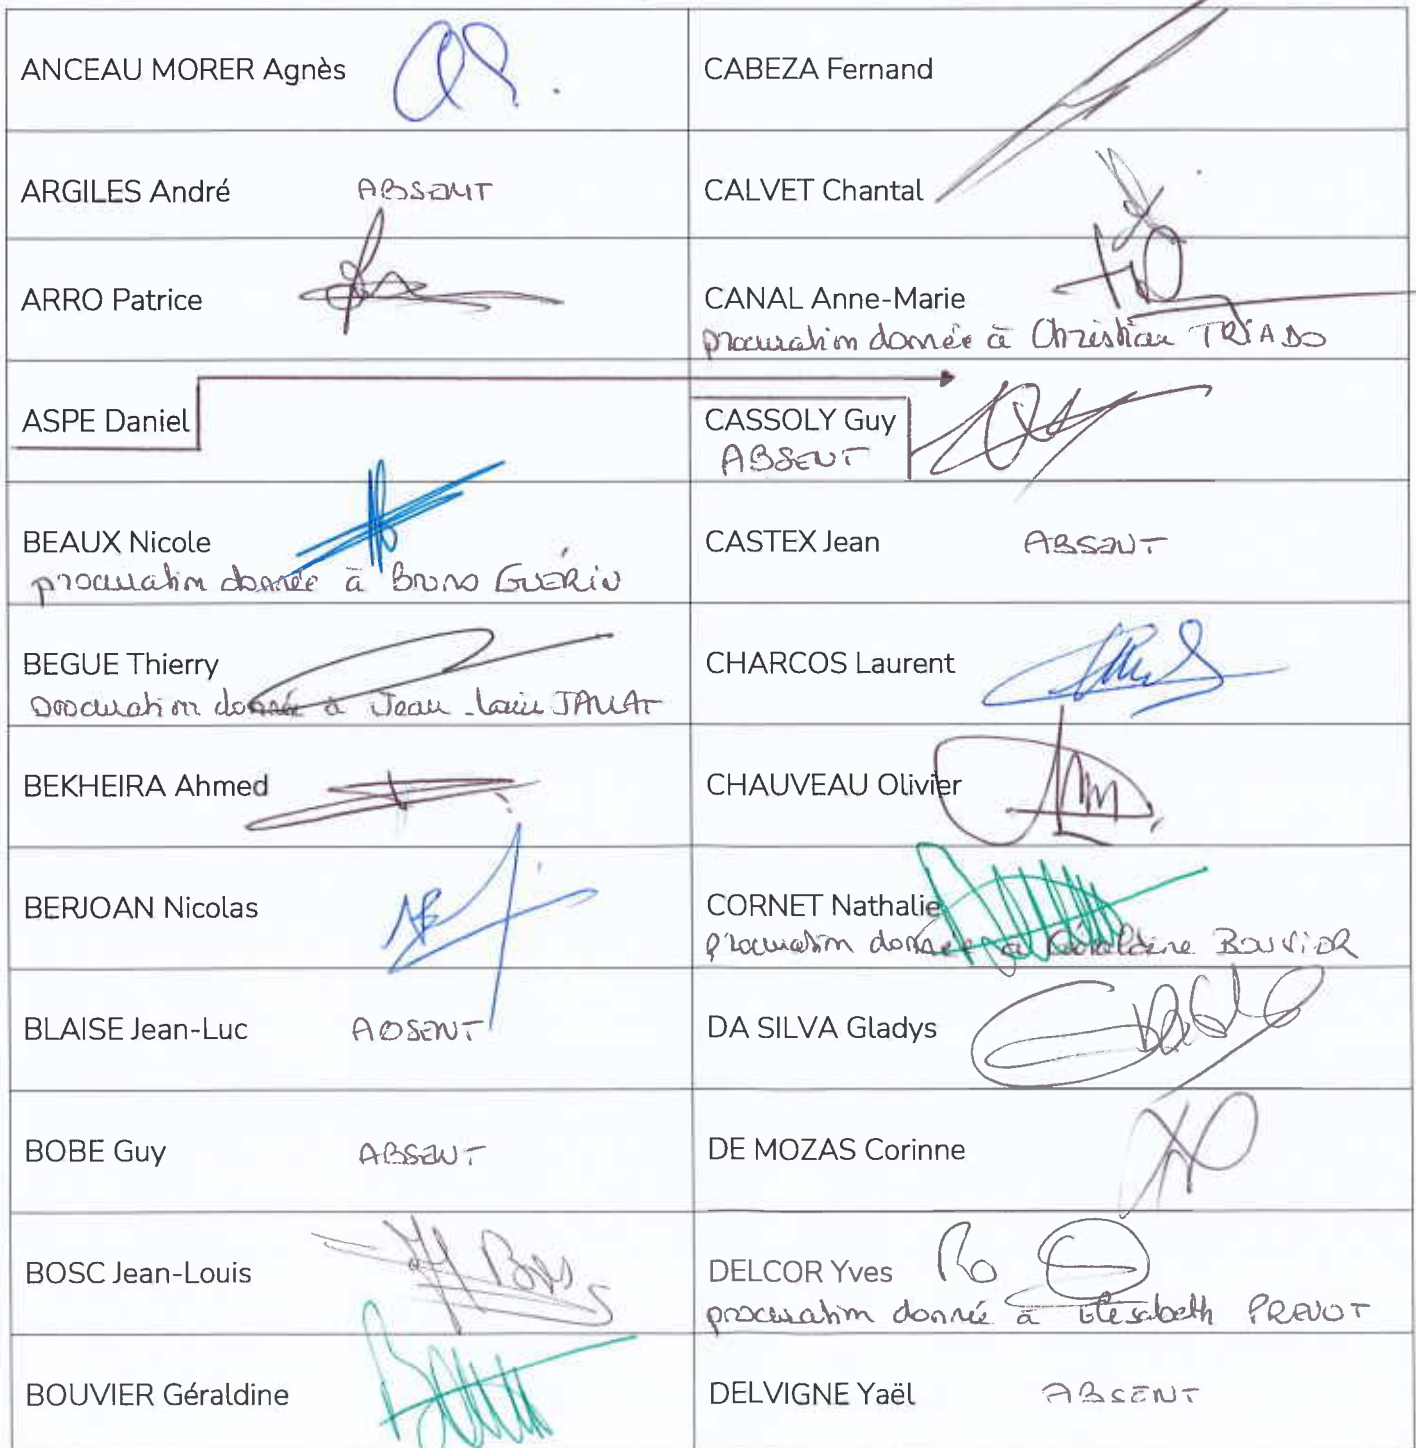 ANCEAU MORER Agnès
CABEZA Fernand
ARGILES André ABSENT
CALVET Chantal
ARRO Patrice
CANAL Anne-Marie
procuration donnée à Christian TRIADO
ASPE Daniel
CASSOLY Guy
ABSENT
BEAUX Nicole
procuration donnée à Bruno GUÉRIN
CASTEX Jean ABSENT
BEGUE Thierry
procuration donnée à Jean-Louis JALLAT
CHARCOS Laurent
BEKHEIRA Ahmed
CHAUVEAU Olivier
BERJOAN Nicolas
CORNET Nathalie
procuration donnée à Géraldine BOUVIER
BLAISE Jean-Luc ABSENT
DA SILVA Gladys
BOBE Guy ABSENT
DE MOZAS Corinne
BOSC Jean-Louis
DELCOR Yves
procuration donnée à Elisabeth PREVOT
BOUVIER Géraldine
DELVIGNE Yaël ABSENT